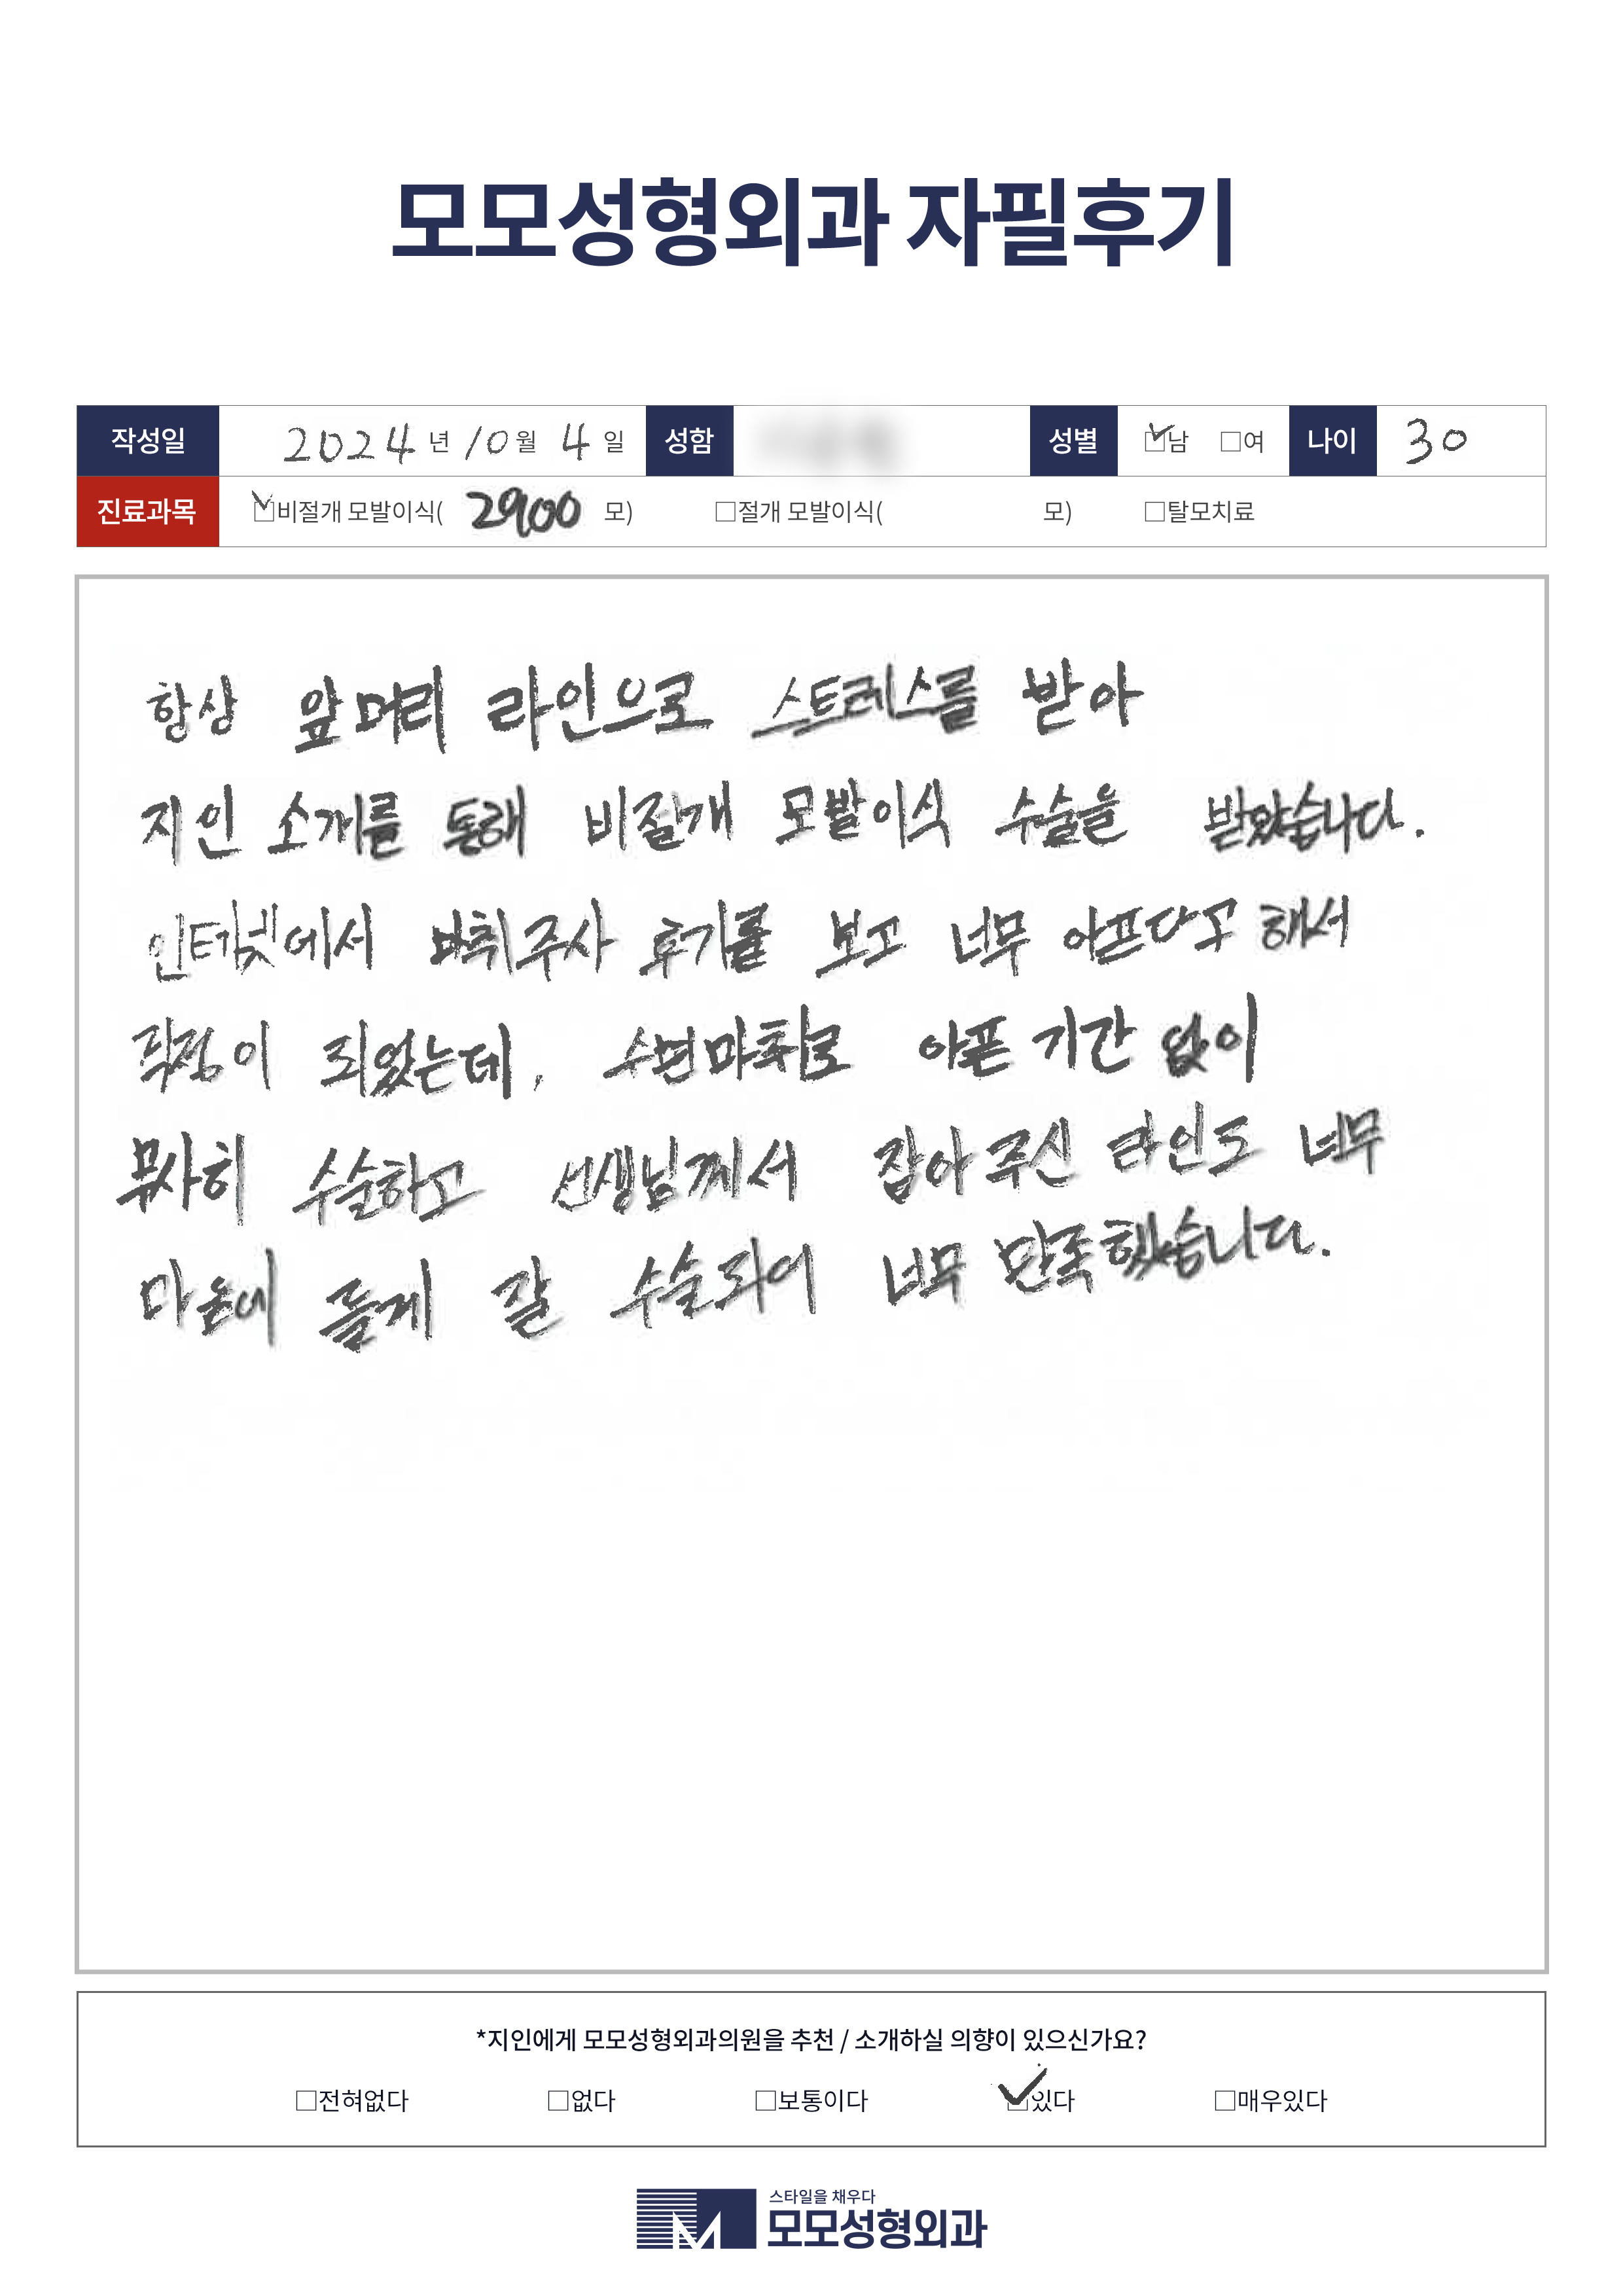 모모성형외과 자필후기
작성일 2024년 10월 4일 성함 성별 ☑남 □여 나이 30
진료과목 ☑비절개 모발이식( 2900 모) □절개 모발이식( 모) □탈모치료
항상 앞머리 라인으로 스트레스를 받아
지인 소개를 통해 비절개 모발이식 수술을 받았습니다.
인터넷에서 마취주사 후기를 보고 너무 아프다고 해서
걱정이 되었는데, 수면마취로 아픈 기간 없이
무사히 수술하고 선생님께서 잡아주신 라인도 너무
마음에 들게 잘 수술되어 너무 만족했습니다.
*지인에게 모모성형외과의원을 추천 / 소개하실 의향이 있으신가요?
□전혀없다 □없다 □보통이다 ☑있다 □매우있다
스타일을 채우다
모모성형외과